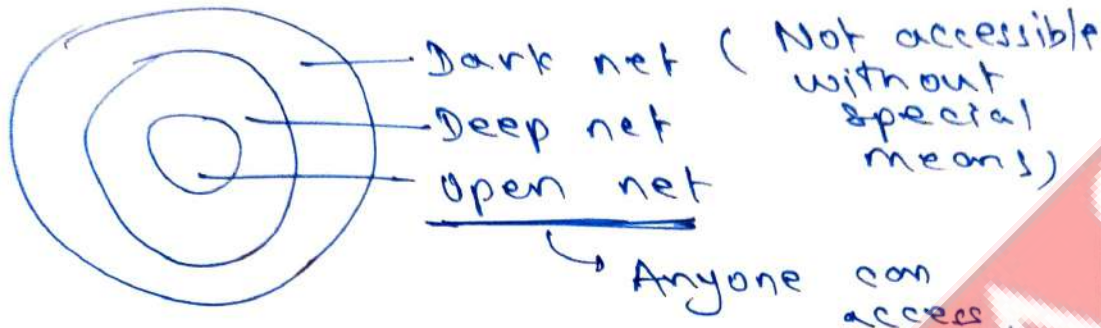 Dark net ( Not accessible
without
special
means)
Deep net
Open net
Anyone can
access.